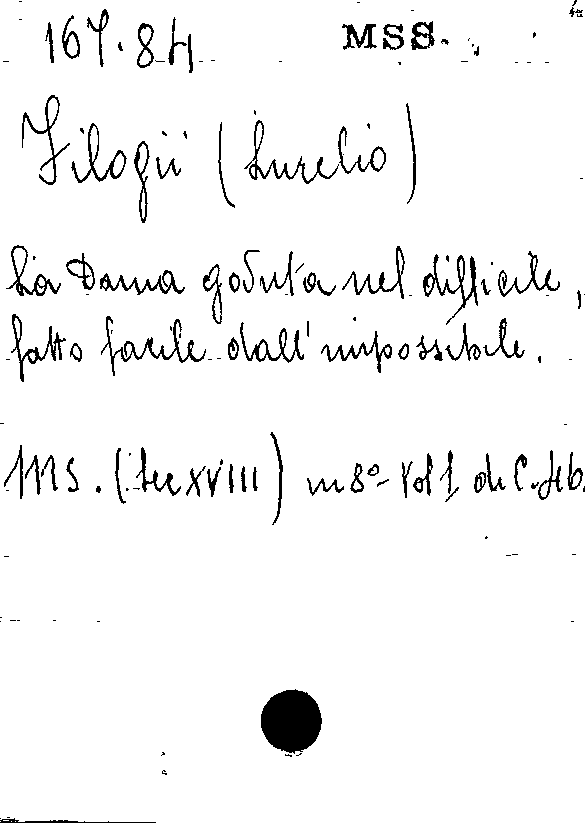 167.84 MSS.
Filogii (Aurelio)
La Dama goduta nel difficile,
fatto facile dall'impossibile.
MS. (Sec XVIII) in 8º Vol 1 di C.